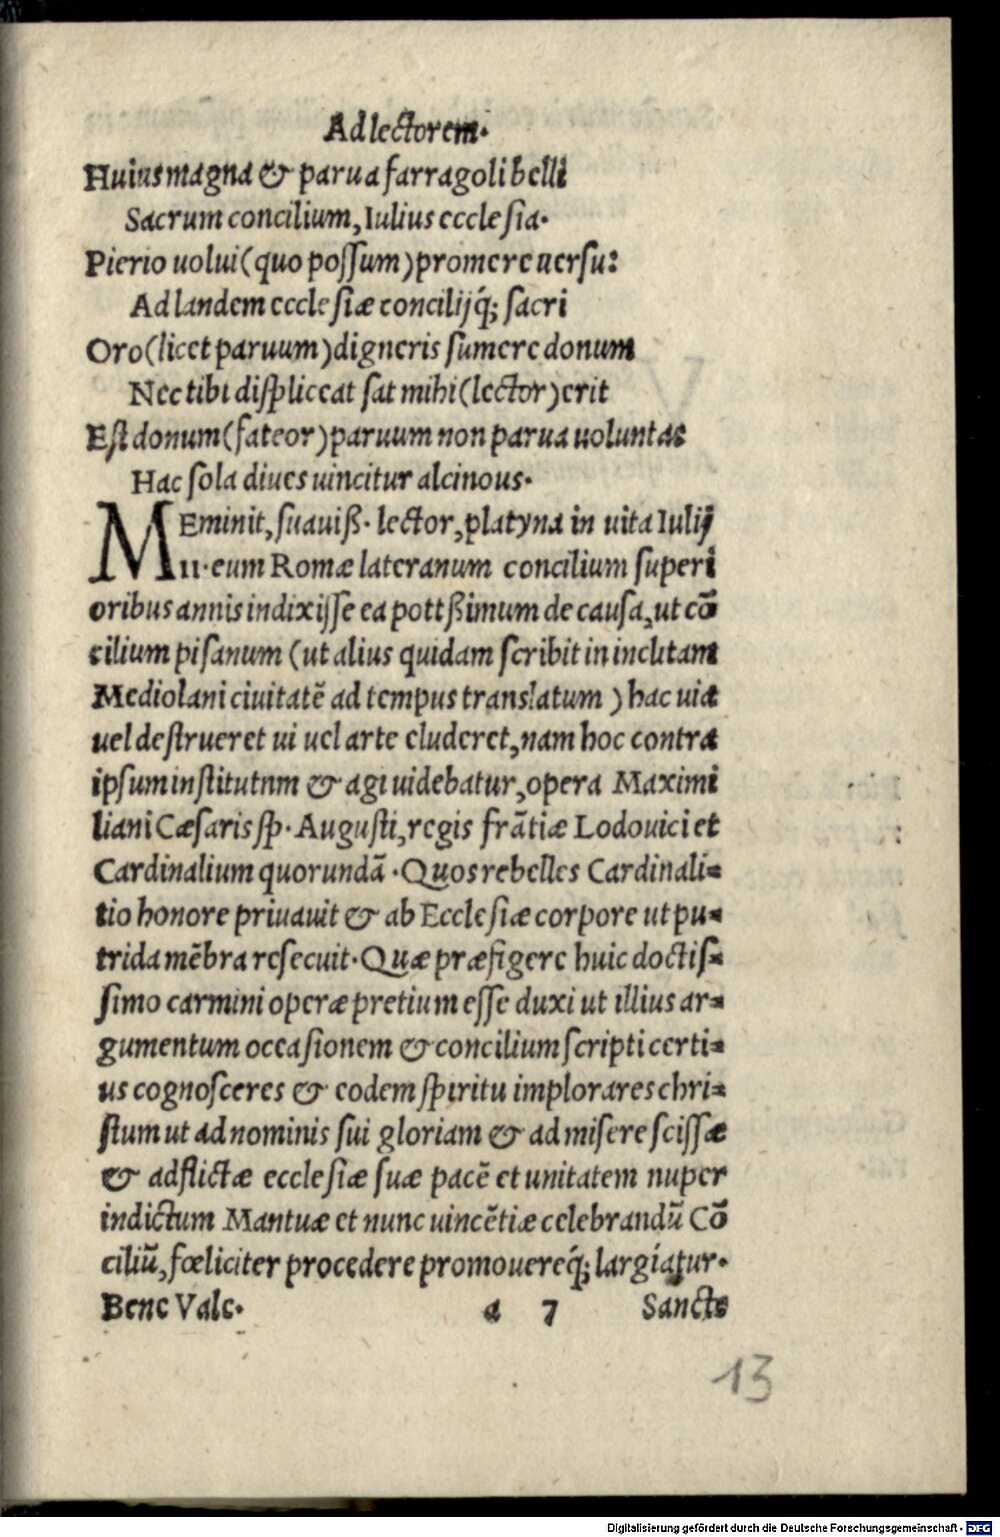 Ad lectorem.
Huius magna & parua farrago libelli
Sacrum concilium, Iulius ecclesia.
Pierio uolui (quo possum) promere uersu:
Ad landem ecclesiæ concilijq́; sacri
Oro (licet paruum) digneris sumere donum
Nec tibi displiceat sat mihi (lector) erit
Est donum (fateor) paruum non parua uoluntas
Hac sola diues uincitur alcinous.
MEminit, suauiß. lector, platyna in uita Iulij
II. eum Romæ lateranum concilium superi
oribus annis indixisse ea pottßimum de causa, ut cō
cilium pisanum (ut alius quidam scribit in inclitam
Mediolani ciuitatē ad tempus translatum) hac uia
uel destrueret ui uel arte eluderet, nam hoc contra
ipsum institutnm & agi uidebatur, opera Maximi
liani Cæsaris sp. Augusti, regis frātiæ Lodouici et
Cardinalium quorundā. Quos rebelles Cardinali-
tio honore priuauit & ab Ecclesiæ corpore ut pu-
trida mēbra resecuit. Quæ præfigere huic doctis-
simo carmini operæpretium esse duxi ut illius ar-
gumentum occasionem & concilium scripti certi-
us cognosceres & eodem spiritu implorares chri-
stum ut ad nominis sui gloriam & ad misere scissæ
& adflictæ ecclesiæ suæ pacē et unitatem nuper
indictum Mantuæ et nunc uincētiæ celebrandū Cō
ciliū, fœliciter procedere promouereq́; largiatur.
Bene Vale. a 7 Sancte
13
Digitalisierung gefördert durch die Deutsche Forschungsgemeinschaft - DFG